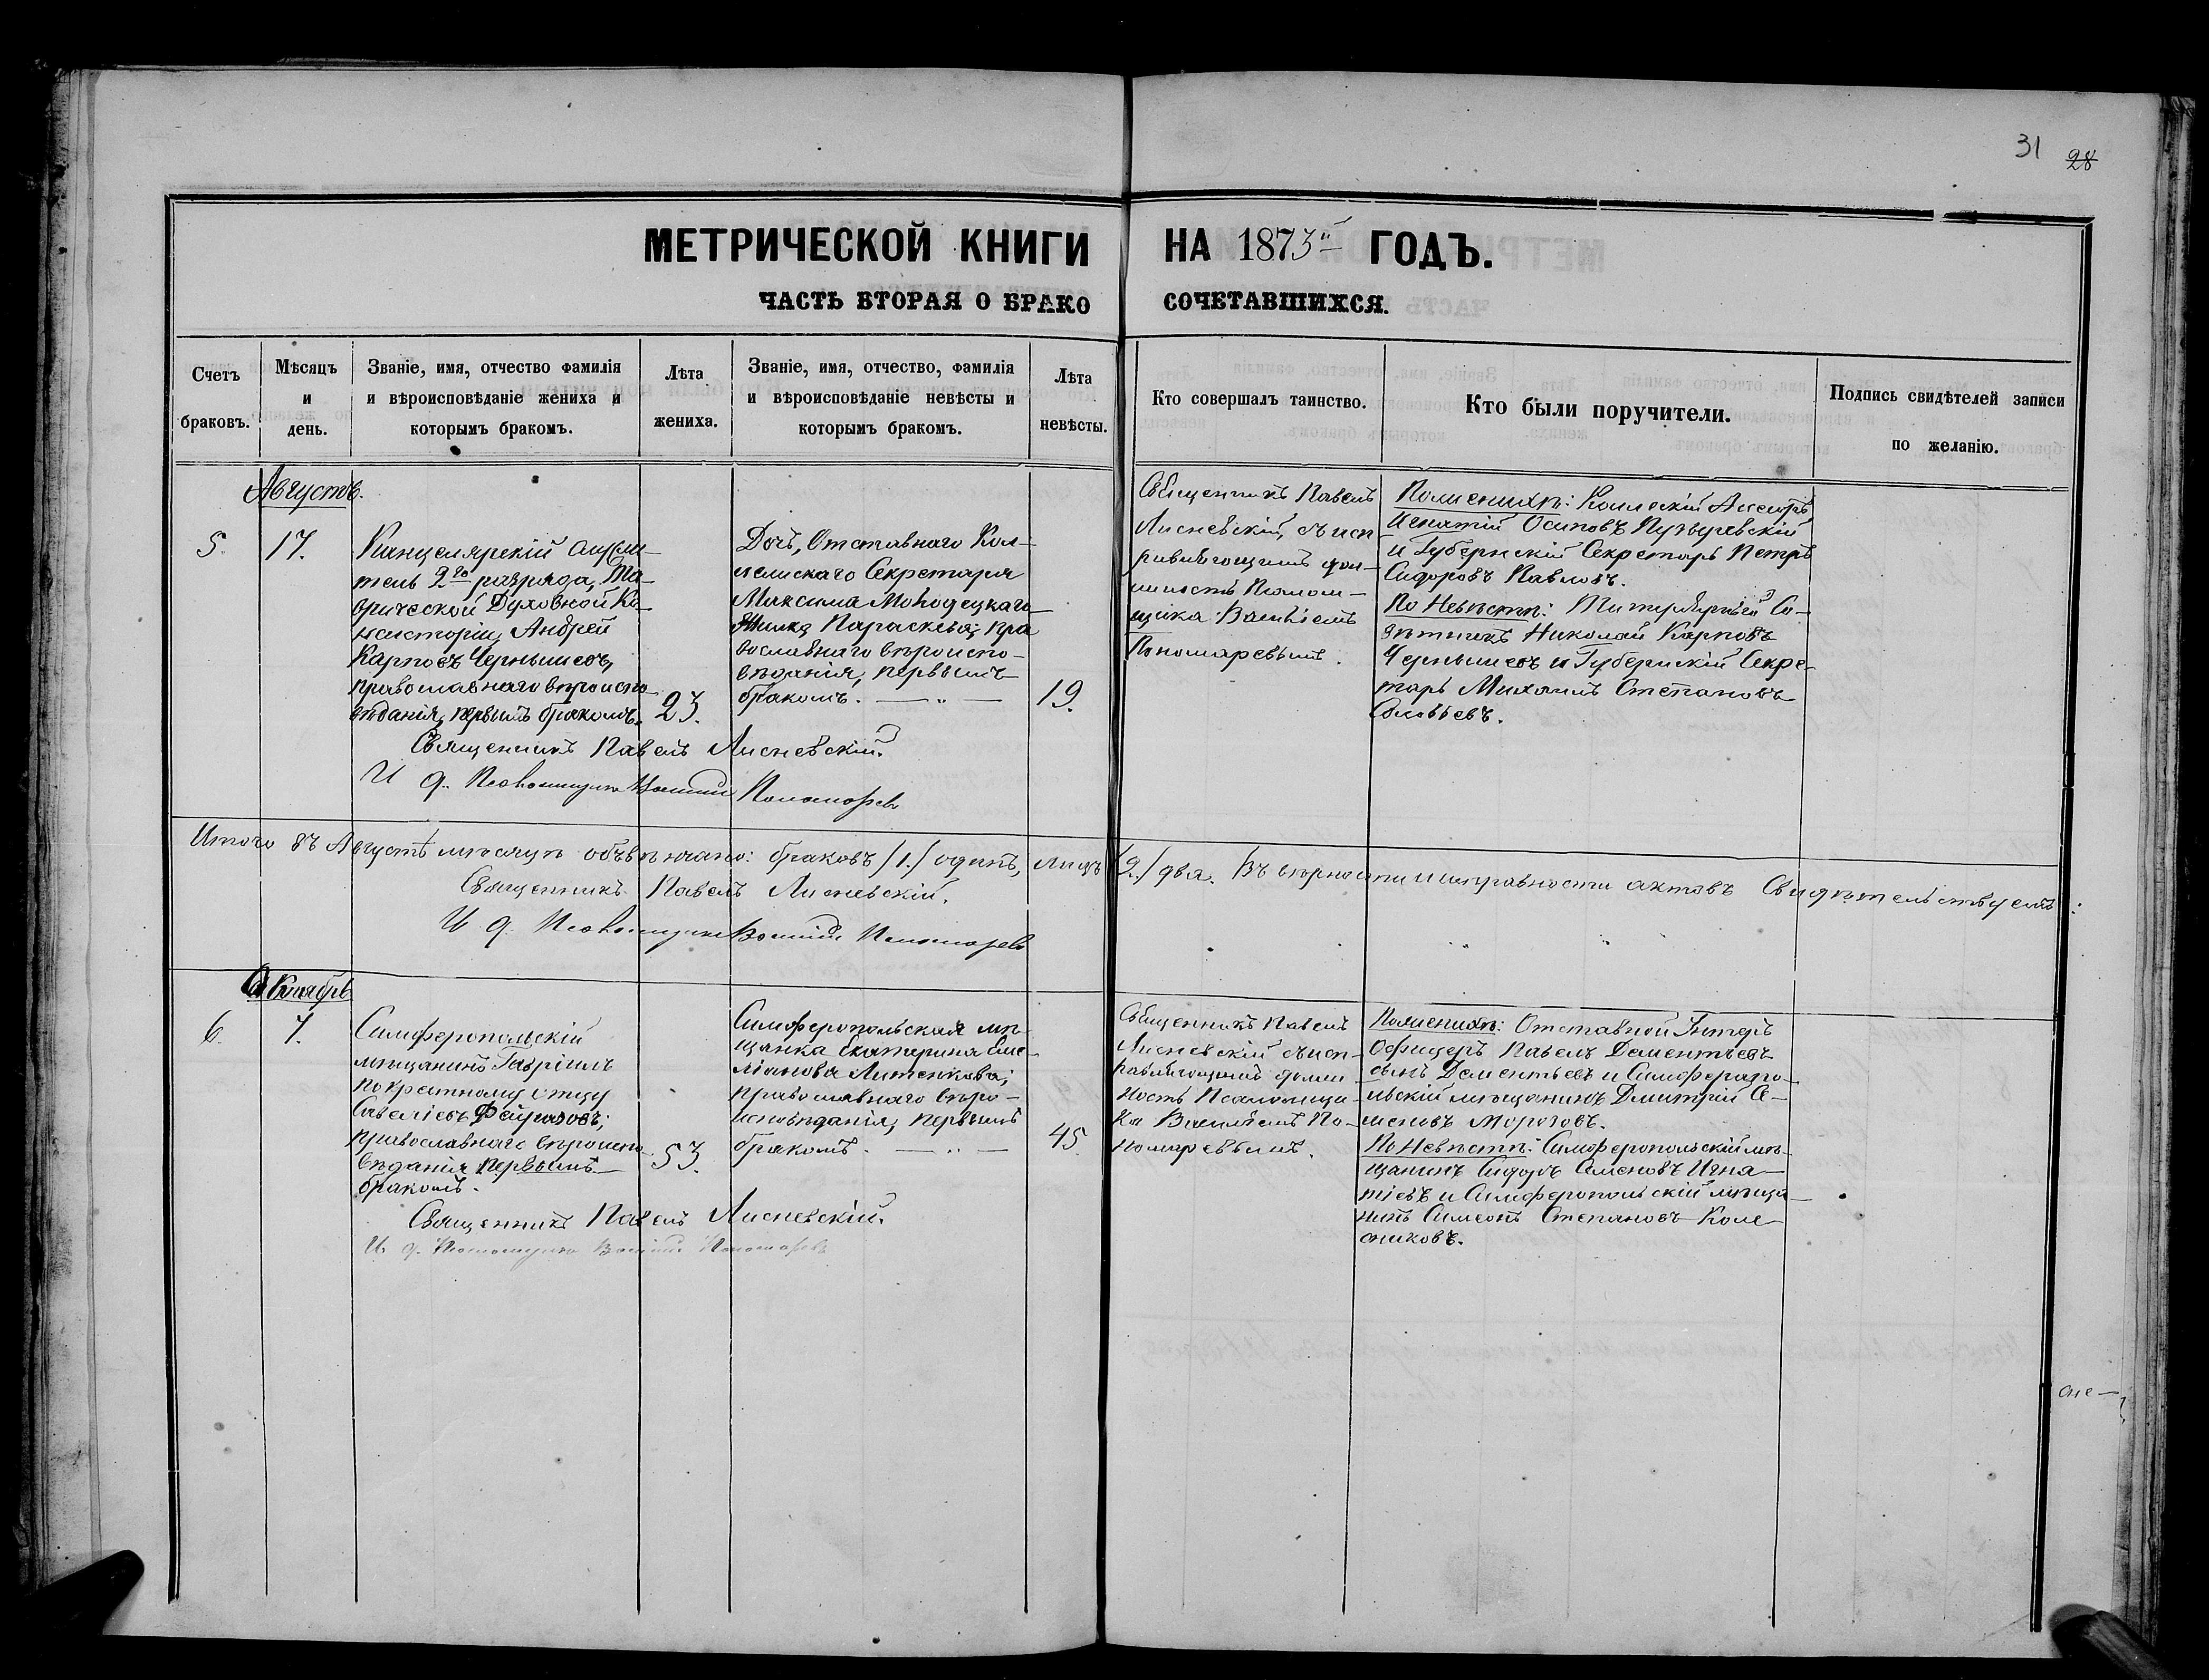 31 28
МЕТРИЧЕСКОЙ КНИГИ НА 1873й ГОДЪ.
ЧАСТЬ ВТОРАЯ О БРАКОСОЧЕТАВШИХСЯ.
Счетъ браковъ.
Мѣсяцъ и день.
Званіе, имя, отчество фамилія
и вѣроисповѣданіе жениха и
которымъ бракомъ.
Лѣта жениха.
Званіе, имя, отчество, фамилія
и вѣроисповѣданіе невѣсты и
которымъ бракомъ.
Лѣта невѣсты.
Кто совершалъ таинство.
Кто были поручители.
Подпись свидѣтелей записи
по желанію.
Августъ.
5.
17.
Канцелярскій служи-
тель 2го разряда, Та-
врической Духовной Ко-
нсисторіи, Андрей
Карповъ Чернышевъ,
православнаго вѣроиспо-
вѣданія, первымъ бракомъ.
23.
Дочь, Отставнаго Кол-
лежскаго Секретаря
Максима
Параскева; пра
вославнаго вѣроиспо-
вѣданія, первымъ
бракомъ. — „ —
19.
Священникъ Павелъ
Лисневскій, съ исп-
равляющимъ дол-
жность Псалом-
щика Василіемъ
Пономаревымъ.
По женихѣ: Коллежскій Ассесоръ
Игнатій Осиповъ
и Губернскій Секретарь Петръ
Сидоровъ Павловъ.
По Невѣстѣ: Титулярный Со-
вѣтникъ Николай Карповъ
Чернышевъ и Губернскій Секре-
тарь Михаилъ Степановъ
Соловьевъ.
Священникъ Павелъ Лисневскій.
И д. Псаломщика Василій Пономаревъ
Итого въ Августѣ мѣсяцѣ объвѣнчано: браковъ /1./ одинъ, лицъ /2./ два. Въ вѣрности и исправности актовъ Свидѣтельствуемъ:
Священникъ Павелъ Лисневскій.
И д. Псаломщика Василій Пономаревъ
Октябрь
6.
7.
Симферопольскій
мѣщанинъ Гавріилъ
по крестному отцу
Савеліевъ Фейразовъ;
православнаго вѣроиспо-
вѣданія первымъ
бракомъ.
53.
Симферопольская мѣ-
щанка Екатерина Еме-
ліанова Литенкова;
православнаго вѣро-
исповѣданія, первымъ
бракомъ. — „ —
45.
Священникъ Павелъ
Лисневскій съ исп-
равляющимъ долж-
ность Псаломщи-
ка Василіемъ По-
номаревымъ.
По женихѣ: Отставной Унтеръ
Офицеръ Павелъ Дементьевъ
сынъ Дементьевъ и Симферопо-
льскій мѣщанинъ Дмитрій Се-
меновъ Морозовъ.
По Невѣстѣ: Симферопольскій мѣ-
щанинъ Сидоръ Семеновъ Игна-
тіевъ и Симферопольскій мѣща-
нинъ Симеонъ Степановъ Коле-
сниковъ.
Священникъ Павелъ Лисневскій.
И д. Псаломщика Василій Пономаревъ